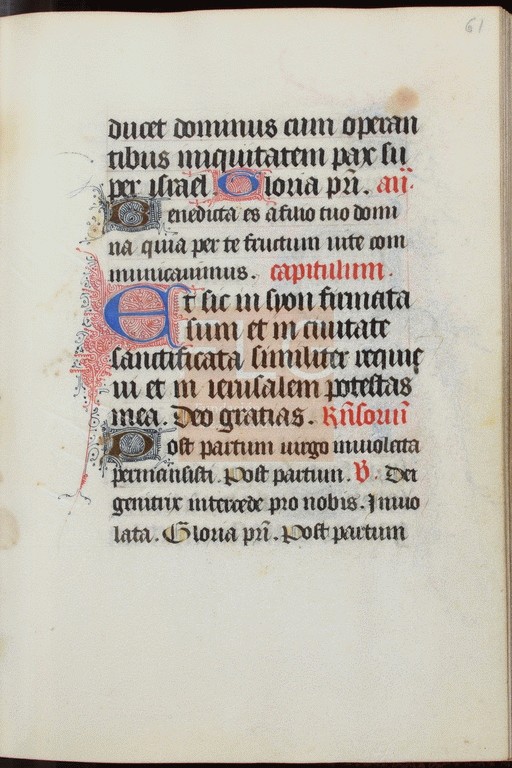 61
ducet dominus cum operan
tibus iniquitatem pax su
per israel Gloria pr̄i. añ.
Benedicta es a filio tuo domi
na quia per te fructum uite com
municauimus. capitulum.
Et sic in syon firmata
sum et in ciuitate
sanctificata similiter requie
ui et in ierusalem potestas
mea. Deo gratias. Rn̄soriū
Post partum uirgo inuiolata
permansisti. Post partum. V. Dei
genitrix intercede pro nobis. Inuio
lata. Gloria pr̄i. Post partum